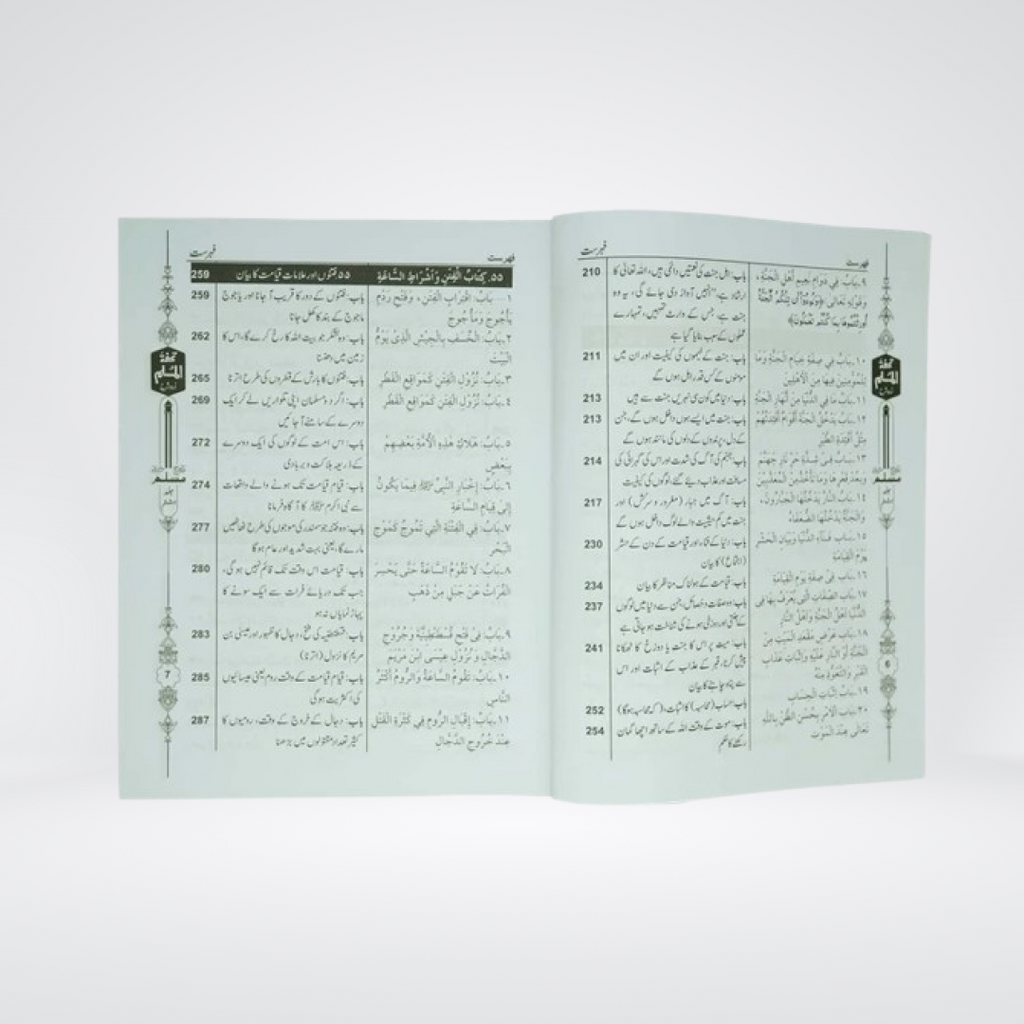 فہرست
فہرست
٩ـ بَابُ: فِي دَوَامِ نَعِيمِ أَهْلِ الْجَنَّةِ،
وَقَوْلِهِ تَعَالَى: ﴿وَنُودُوٓا۟ أَن تِلْكُمُ ٱلْجَنَّةُ
أُورِثْتُمُوهَا بِمَا كُنتُمْ تَعْمَلُونَ﴾
باب: اہل جنت کی نعمتیں دائمی ہیں، اللہ تعالیٰ کا
ارشاد ہے، "انہیں آواز دی جائے گی، یہ وہ
جنت ہے، جس کے وارث تمہیں، تمہارے
عملوں کے سبب بنایا گیا ہے
210
١٠ـ بَابُ: فِي صِفَةِ خِيَامِ الْجَنَّةِ وَمَا
لِلْمُؤْمِنِينَ فِيهَا مِنَ الْأَهْلِينَ
باب: جنت کے خیموں کی کیفیت اور ان میں
مومنوں کے کس قدر اہل ہوں گے
211
١١ـ بَابُ: مَا فِي الدُّنْيَا مِنْ أَنْهَارِ الْجَنَّةِ
باب: دنیا میں کون سی نہریں جنت سے ہیں
213
١٢ـ بَابُ: يَدْخُلُ الْجَنَّةَ أَقْوَامٌ أَفْئِدَتُهُمْ
مِثْلُ أَفْئِدَةِ الطَّيْرِ
باب: جنت میں ایسے لوگ داخل ہوں گے، جن
کے دل، پرندوں کے دلوں کی مانند ہوں گے
213
١٣ـ بَابُ: فِي شِدَّةِ حَرِّ نَارِ جَهَنَّمَ
وَبُعْدِ قَعْرِهَا وَمَا تَأْخُذُ مِنَ الْمُعَذَّبِينَ
باب: جہنم کی آگ کی شدت اور اس کی گہرائی کی
مسافت اور عذاب دیئے گئے، لوگوں کی کیفیت
214
١٤ـ بَابُ: النَّارُ يَدْخُلُهَا الْجَبَّارُونَ،
وَالْجَنَّةُ يَدْخُلُهَا الضُّعَفَاءُ
باب: آگ میں جبار (مغرور و سرکش) اور
جنت میں کم حیثیت والے لوگ داخل ہوں گے
217
١٥ـ بَابُ: فَنَاءِ الدُّنْيَا وَبَيَانِ الْحَشْرِ
يَوْمَ الْقِيَامَةِ
باب: دنیا کے فناء اور قیامت کے دن کے حشر
(اجتماع) کا بیان
230
١٦ـ بَابُ: فِي صِفَةِ يَوْمِ الْقِيَامَةِ
باب: قیامت کے ہولناک مناظر کا بیان
234
١٧ـ بَابُ: الصِّفَاتِ الَّتِي يُعْرَفُ بِهَا فِي
الدُّنْيَا أَهْلُ الْجَنَّةِ وَأَهْلُ النَّارِ
باب: وہ صفات و خصائل، جن سے دنیا میں لوگوں
کے جنتی اور دوزخی ہونے کی شناخت ہو جاتی ہے
237
١٨ـ بَابُ: عَرْضِ مَقْعَدِ الْمَيِّتِ مِنَ
الْجَنَّةِ أَوِ النَّارِ عَلَيْهِ وَإِثْبَاتِ عَذَابِ
الْقَبْرِ وَالتَّعَوُّذِ مِنْهُ
باب: میت پر اس کا جنت یا دوزخ کا ٹھکانا
پیش کرنا، قبر کے عذاب کے اثبات اور اس
سے پناہ چاہنے کا بیان
241
١٩ـ بَابُ: إِثْبَاتِ الْحِسَابِ
باب: حساب (محاسبہ) کا اثبات، (کہ محاسبہ ہوگا)
252
٢٠ـ بَابُ: الْأَمْرِ بِحُسْنِ الظَّنِّ بِاللَّهِ
تَعَالَى عِنْدَ الْمَوْتِ
باب: موت کے وقت اللہ کے ساتھ اچھا گمان
رکھنے کا حکم
254
تحفۃ
المسلم
مسلم
جلد
6
فہرست
فہرست
٥٥ـ كِتَابُ الْفِتَنِ وَأَشْرَاطِ السَّاعَةِ
٥٥ فتنوں اور علامات قیامت کا بیان
259
١ـ بَابُ: اقْتِرَابِ الْفِتَنِ، وَفَتْحِ رَدْمِ
يَأْجُوجَ وَمَأْجُوجَ
باب: فتنوں کے دور کا قریب آ جانا اور یاجوج
ماجوج کے بند کا کھل جانا
259
٢ـ بَابُ: الْخَسْفِ بِالْجَيْشِ الَّذِي يَؤُمُّ
الْبَيْتَ
باب: وہ لشکر جو بیت اللہ کا رخ کرے گا، اس کا
زمین میں دھنسنا
262
٣ـ بَابُ: نُزُولِ الْفِتَنِ كَمَوَاقِعِ الْقَطْرِ
باب: فتنوں کا بارش کے قطروں کی طرح اترنا
265
٤ـ بَابُ: نُزُولِ الْفِتَنِ كَمَوَاقِعِ الْقَطْرِ
باب: اگر دو مسلمان اپنی تلواریں لے کر ایک
دوسرے کے سامنے آ جائیں
269
٥ـ بَابُ: هَلَاكِ هَذِهِ الْأُمَّةِ بَعْضِهِمْ
بِبَعْضٍ
باب: اس امت کے لوگوں کی ایک دوسرے
کے ذریعہ ہلاکت و بربادی
272
٦ـ بَابُ: إِخْبَارِ النَّبِيِّ ﷺ فِيمَا يَكُونُ
إِلَى قِيَامِ السَّاعَةِ
باب: قیام قیامت تک ہونے والے واقعات
سے نبی اکرم ﷺ کا آگاہ فرمانا
274
٧ـ بَابُ: فِي الْفِتْنَةِ الَّتِي تَمُوجُ كَمَوْجِ
الْبَحْرِ
باب: وہ فتنہ جو سمندر کی موجوں کی طرح ٹھاٹھیں
مارے گا، یعنی بہت شدید اور عام ہوگا
277
٨ـ بَابُ: لَا تَقُومُ السَّاعَةُ حَتَّى يَحْسِرَ
الْفُرَاتُ عَنْ جَبَلٍ مِنْ ذَهَبٍ
باب: قیامت اس وقت تک قائم نہیں ہو گی،
جب تک دریائے فرات سے ایک سونے کا
پہاڑ نمایاں نہ ہو
280
٩ـ بَابُ: فِي فَتْحِ قُسْطَنْطِينِيَّةَ وَخُرُوجِ
الدَّجَّالِ وَنُزُولِ عِيسَى ابْنِ مَرْيَمَ
باب: قسطنطنیہ کی فتح، دجال کا ظہور اور عیسیٰ بن
مریم کا نزول (اترنا)
283
١٠ـ بَابُ: تَقُومُ السَّاعَةُ وَالرُّومُ أَكْثَرُ
النَّاسِ
باب: قیام قیامت کے وقت روم یعنی عیسائیوں
کی اکثریت ہوگی
285
١١ـ بَابُ: إِقْبَالِ الرُّومِ فِي كَثْرَةِ الْقَتْلِ
عِنْدَ خُرُوجِ الدَّجَّالِ
باب: دجال کے خروج کے وقت، رومیوں کا
کثیر تعداد مقتولوں میں بڑھنا
287
تحفۃ
المسلم
مسلم
جلد
7